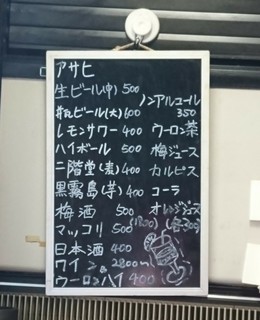 アサヒ
生ビール(中) 500
ビール(大) 600
レモンサワー 400
ハイボール 500
二階堂(麦) 400
黒霧島(芋) 400
梅酒 500
マッコリ 500
日本酒 400
ワイン 2800〜
ウーロンハイ 400
ノンアルコール
350
ウーロン茶
梅ジュース
カルピス
コーラ
オレンジジュース
(各300)